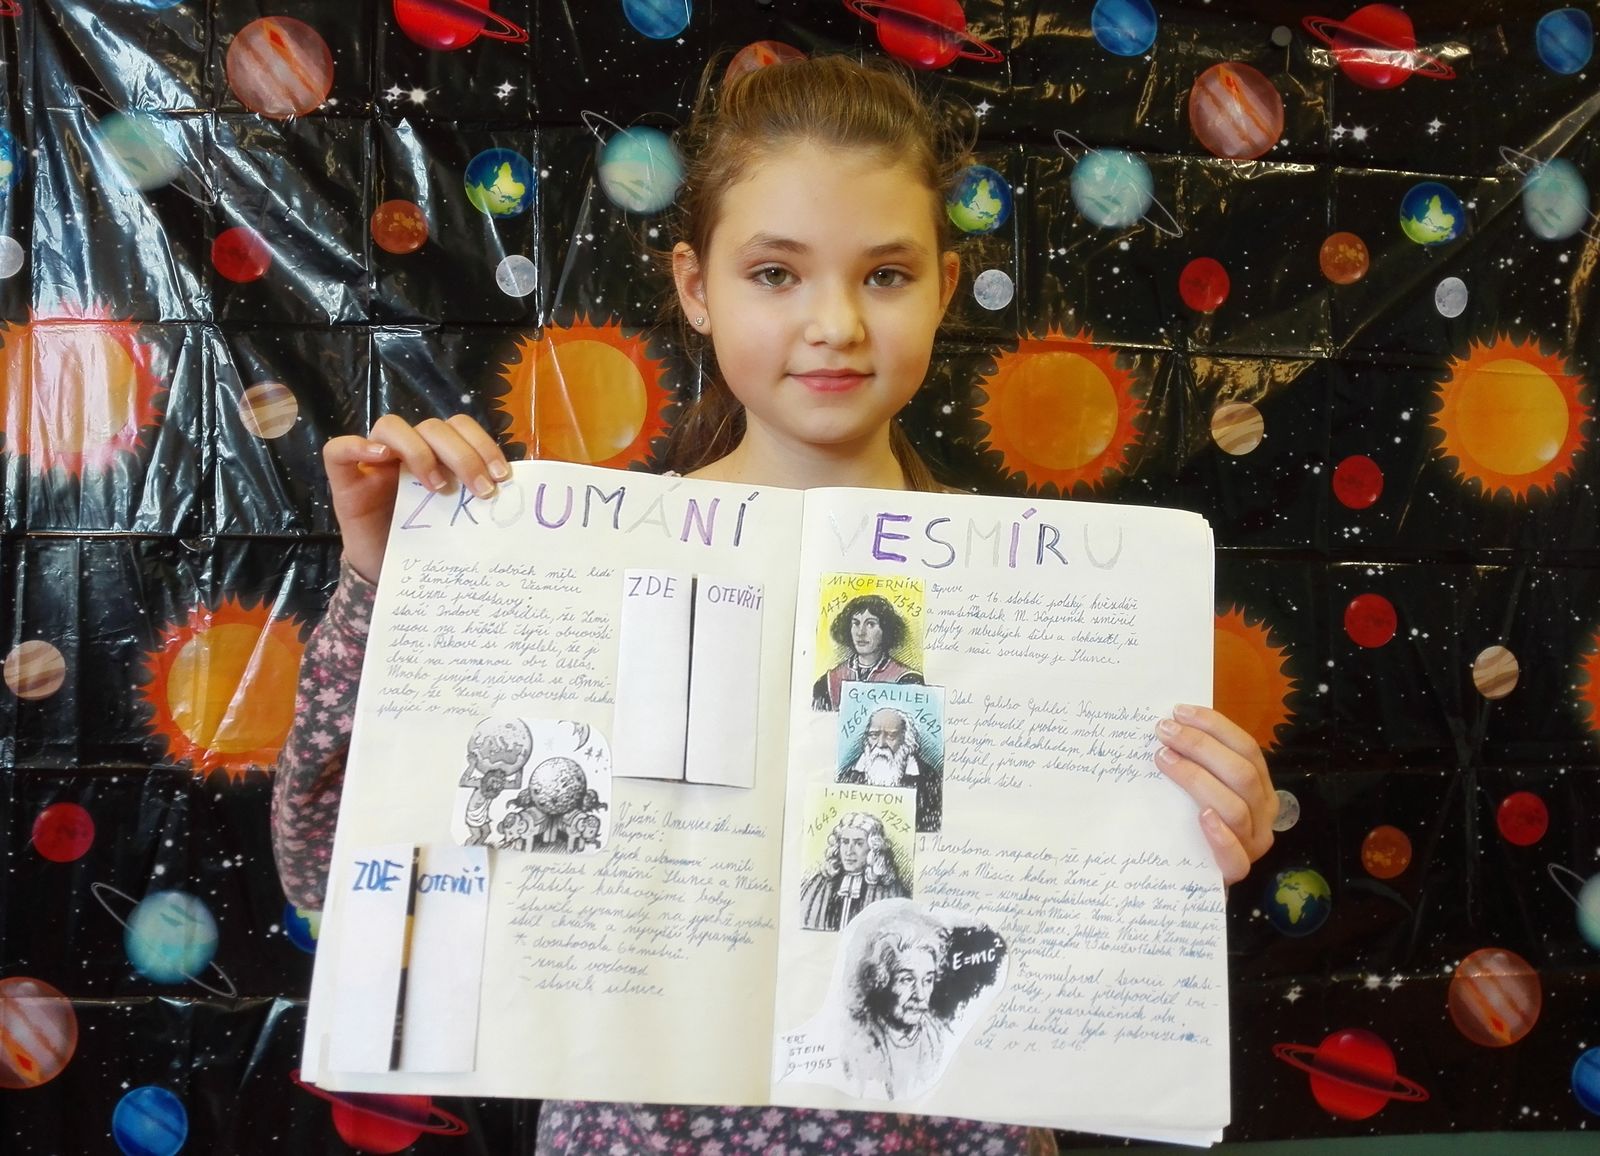 ZKOUMÁNÍ VESMÍRU
V dávných dobách měli lidé
o Zeměkouli a Vesmíru
různé představy:
staří Indové soudili, že Zemi
nesou na hřbětě čtyři obrovští
sloni. Řekové si mysleli, že ji
drží na ramenou obr Atlas.
Mnoho jiných národů se domní-
valo, že Země je obrovská deska
plující v moři.
ZDE OTEVŘÍT
V jižní Americe žili indiáni
Mayové:
Jejich astronomové uměli
vypočítat zatmění Slunce a Měsíce
- platily kakaovými boby
- stavěli pyramidy na jejichž vrcholu
stál chrám a nejvyšší pyramida
dosahovala 64 metrů.
- znali vodovod
- stavěli silnice
ZDE OTEVŘÍT
M. KOPERNÍK
1473 1543
v 16. století polský hvězdář
a matematik M. Koperník změřil
pohyby nebeských těles a dokázal, že
středem naší soustavy je Slunce.
G. GALILEI
1564 1642
Ital Galileo Galilei Koperníkův
názor potvrdil protože mohl nově vyna-
lezeným dalekohledem, který sám
zlepšil, přímo sledovat pohyby ne-
beských těles.
I. NEWTON
1643 1727
I. Newtona napadlo, že pád jablka i
pohyb Měsíce kolem Země je ovládán stejným
zákonem - zemskou přitažlivostí. Jako Země přitahuje
jablko, přitahuje i Měsíc. Zemi a planety zase při-
tahuje Slunce.
E=mc²
STEIN
9-1955
Formuloval teorii relati-
vity, kde předpověděl exi-
stenci gravitačních vln.
Jeho teorie byla potvrzena
až v r. 2016.